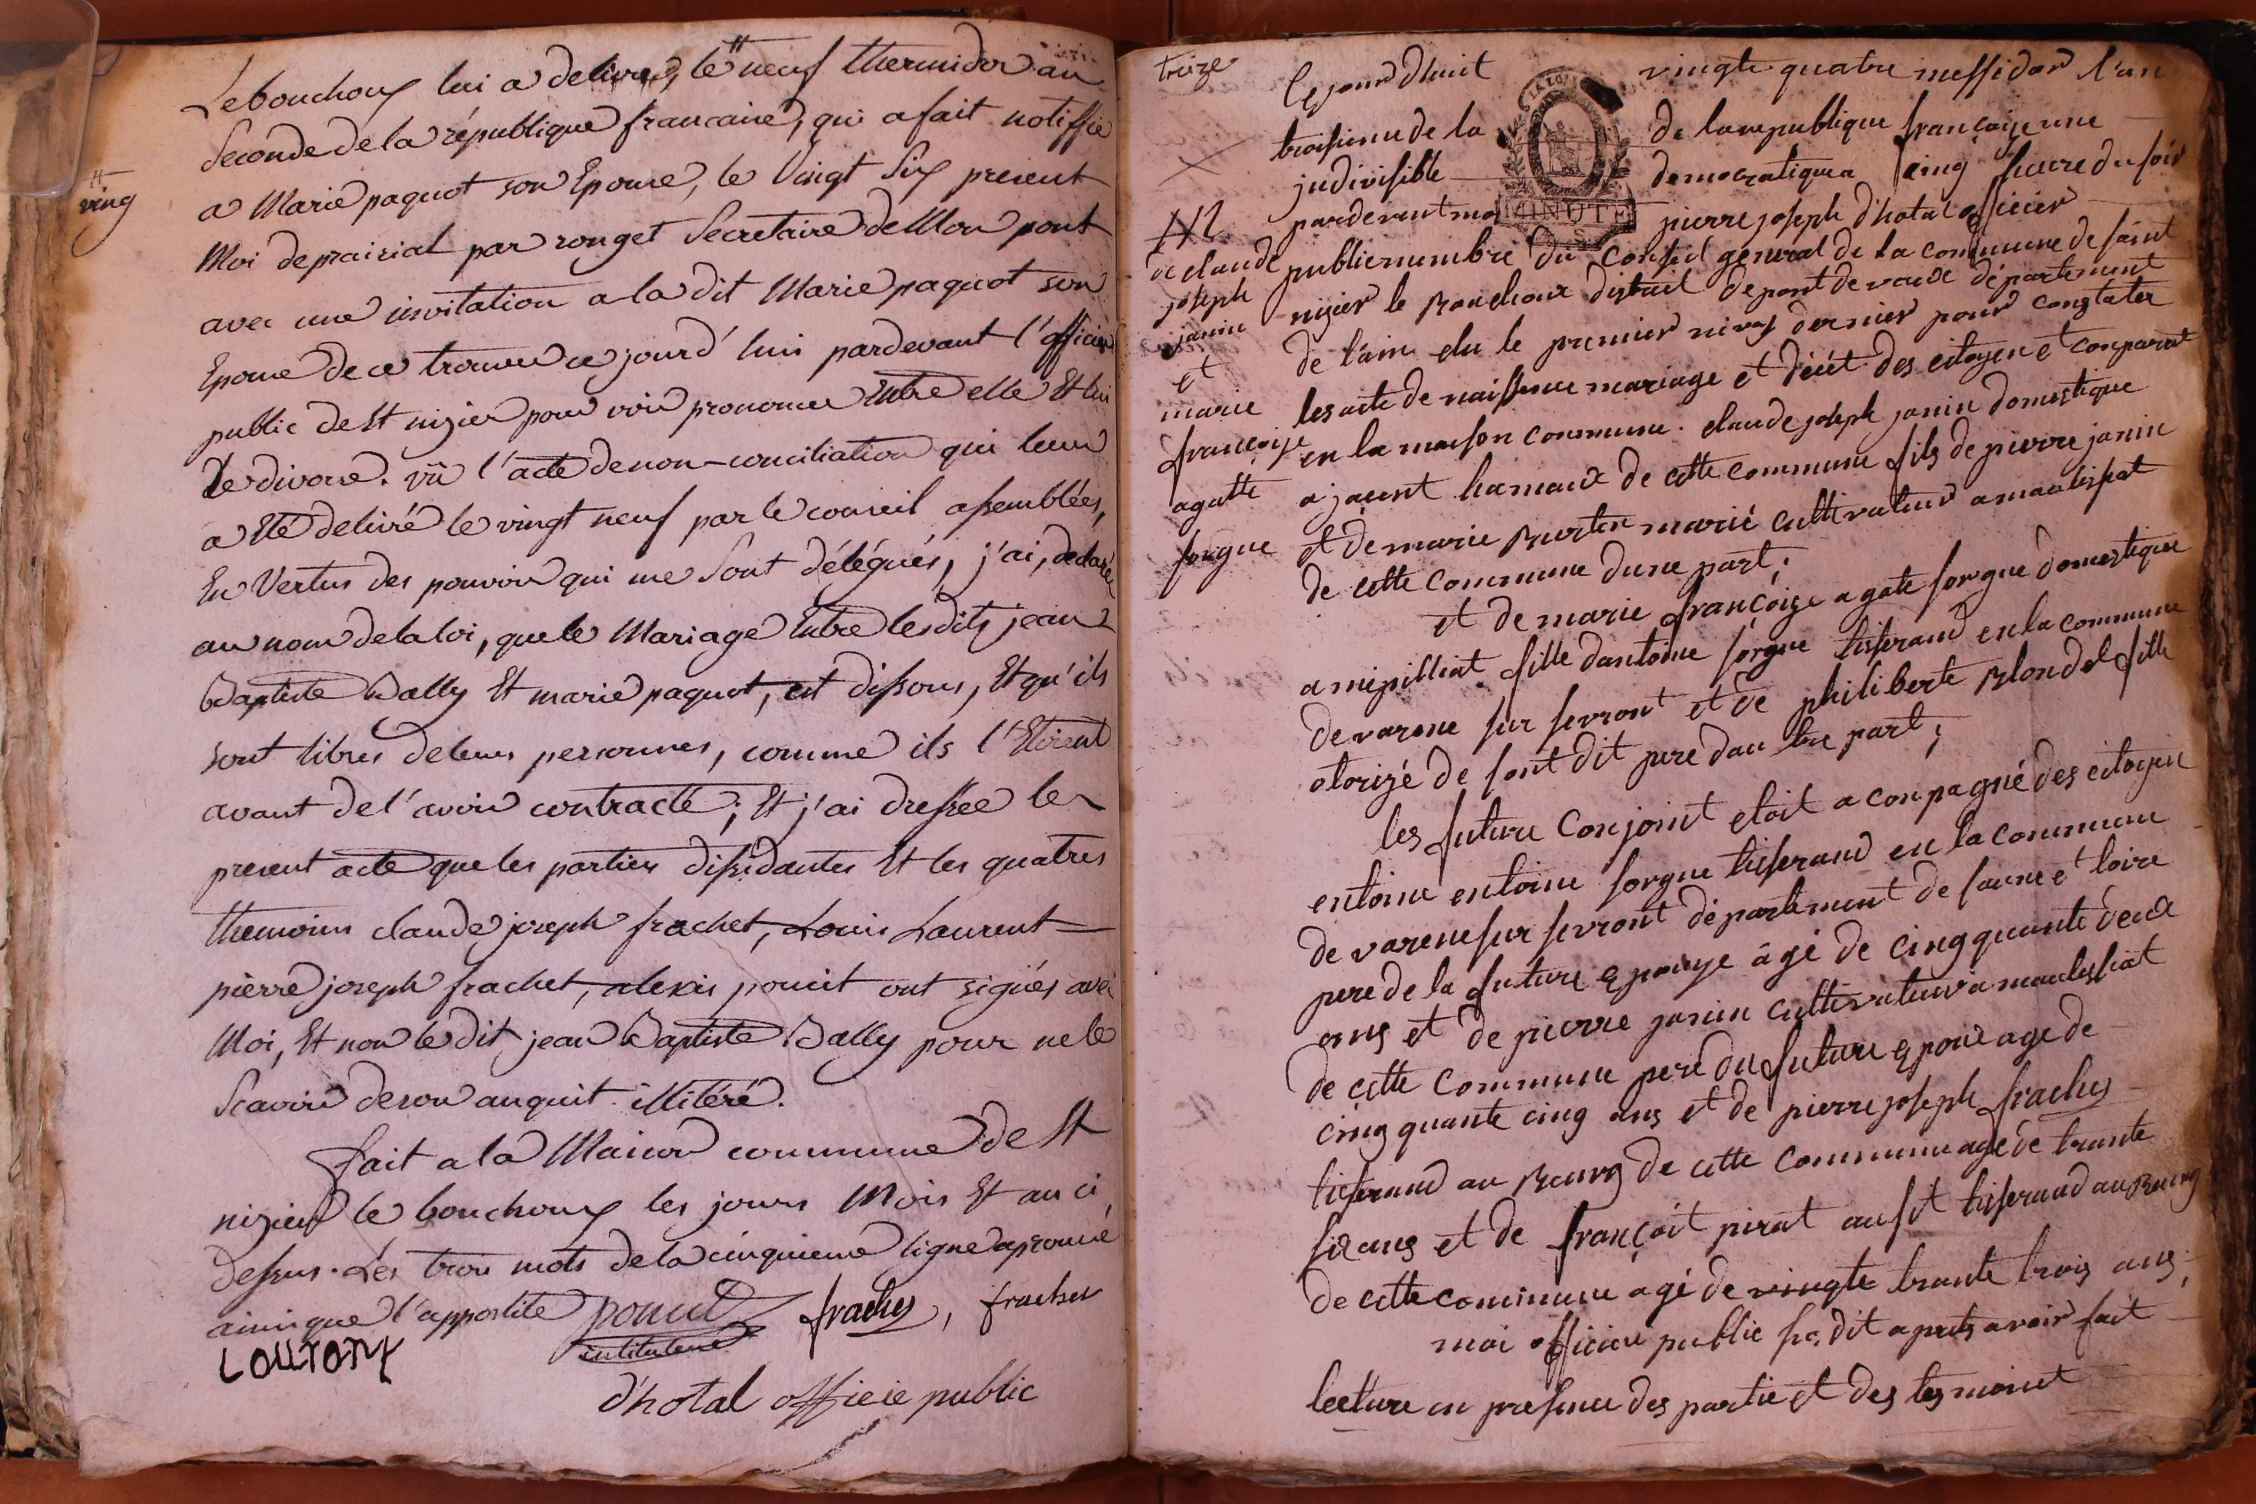 Lebouchoux lui a delivré, le neuf thermidor an
Seconde de la république francaise, qui a fait notiffié
ving
a Marie paquot son Epouse, le Vingt Six present
Moi de prairial par ronget Secretaire de Mon pont
avec une invitation a la dit Marie paquot son
Epouse de ce trouver ce jourd'hui pardevant l'officier
public de St nizier pour voir prononcer Entre elle Et lui
le divorce. vü l'acte de non-conciliation qui leur
a Eté delivré le vingt neuf par le conseil assemblées,
En Vertus des pouvoir qui me Sont délégués, j'ai, declaré
au nom de la loi, que le Mariage Entre lesdits jean
Baptiste Bally Et marie paquot, est dissous, Et qu'ils
sont libres de leurs personnes, comme ils l'Etoient
avant de l'avoir contracté; Et j'ai dressée le
present acte que les parties dissidantes Et les quatres
themoins claude joseph frachet, Louis Laurent
pièrre joseph frachet, alexis poncet ont signés avec
Moi, Et non le dit jean Baptiste Bally pour ne le
Scavoir de son anquit illitéré.
fait a la Maison commune de St
nizier le bouchoux les jours Mois Et an ci
dessus. Les trois mots de la cinquieme ligne aprouvé
ainsi que l'appostite poncet frachet, frachet
Lourony instituteur
d'hotal officie public
treize
Ce jourd'huit vingte quatre messidor l'an
troisieme de la de la republique françoize une
indivisible democratique a cinq heure du soir
MINUTE
pardevent moi pierre joseph d'hotal officier
N2
de claude joseph janin et marie françoize agatte sorgue
public membre du conseil general de la commune de saint
nizier le Bouchoux distric de pont de vaux département
de l'ain elu le premier nivos dernier pour constater
les acte de naissence mariage et décét des citoyen et conparut
en la maison commune. claude joseph janin domestique
a jacent hamaux de cette commune fils de pierre janin
et de marie Burtin marié cultivateur a
de cette commune dune part;
et de marie françoize agate sorgue domestique
a mipilliat fille dantoine sorgue tisserand en la commune
de varene sur sevront et de philiberte Blondel fille
otorizé de sont dit pere dau tre part;
les future conjoint etoit a conpagné des citoyen
entoine entoine sorgue tisserand en la commune
de varene sur sevront département de saune et loire
pere de la future epouze âgé de cingquante deux
ans et de pierre janin cultivateur a
de cette commune pere du future epoux age de
cinq quante cinq ans et de pierre joseph frachet
tisserand au Bourg de cette commune agé de trante
six ans et de françoit pirat ausit tisserand au Bourg
de cette commune agé de vingte trante trois ans;
moi officier public su. dit apres avoir fait
lecture en presence des partie et des tesmoint